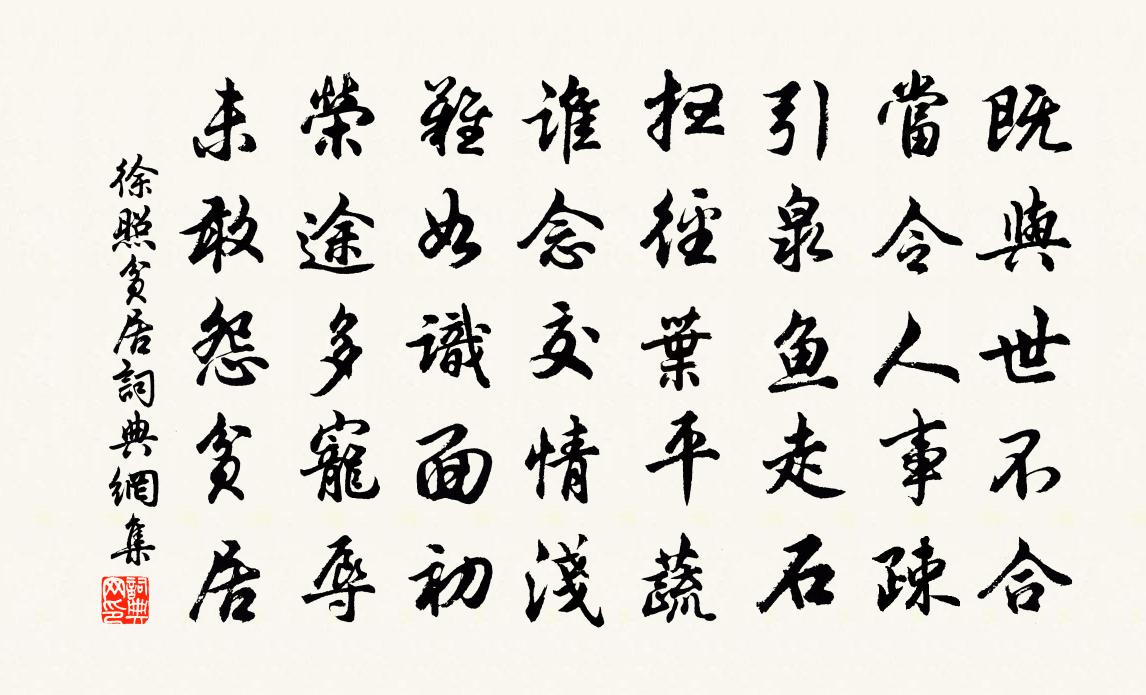 既與世不合
當令人事疎
引泉魚走石
掃徑葉平蔬
誰念交情淺
難如識面初
榮途多寵辱
未敢怨貧居
徐照貧居詞典網集
詞典網印